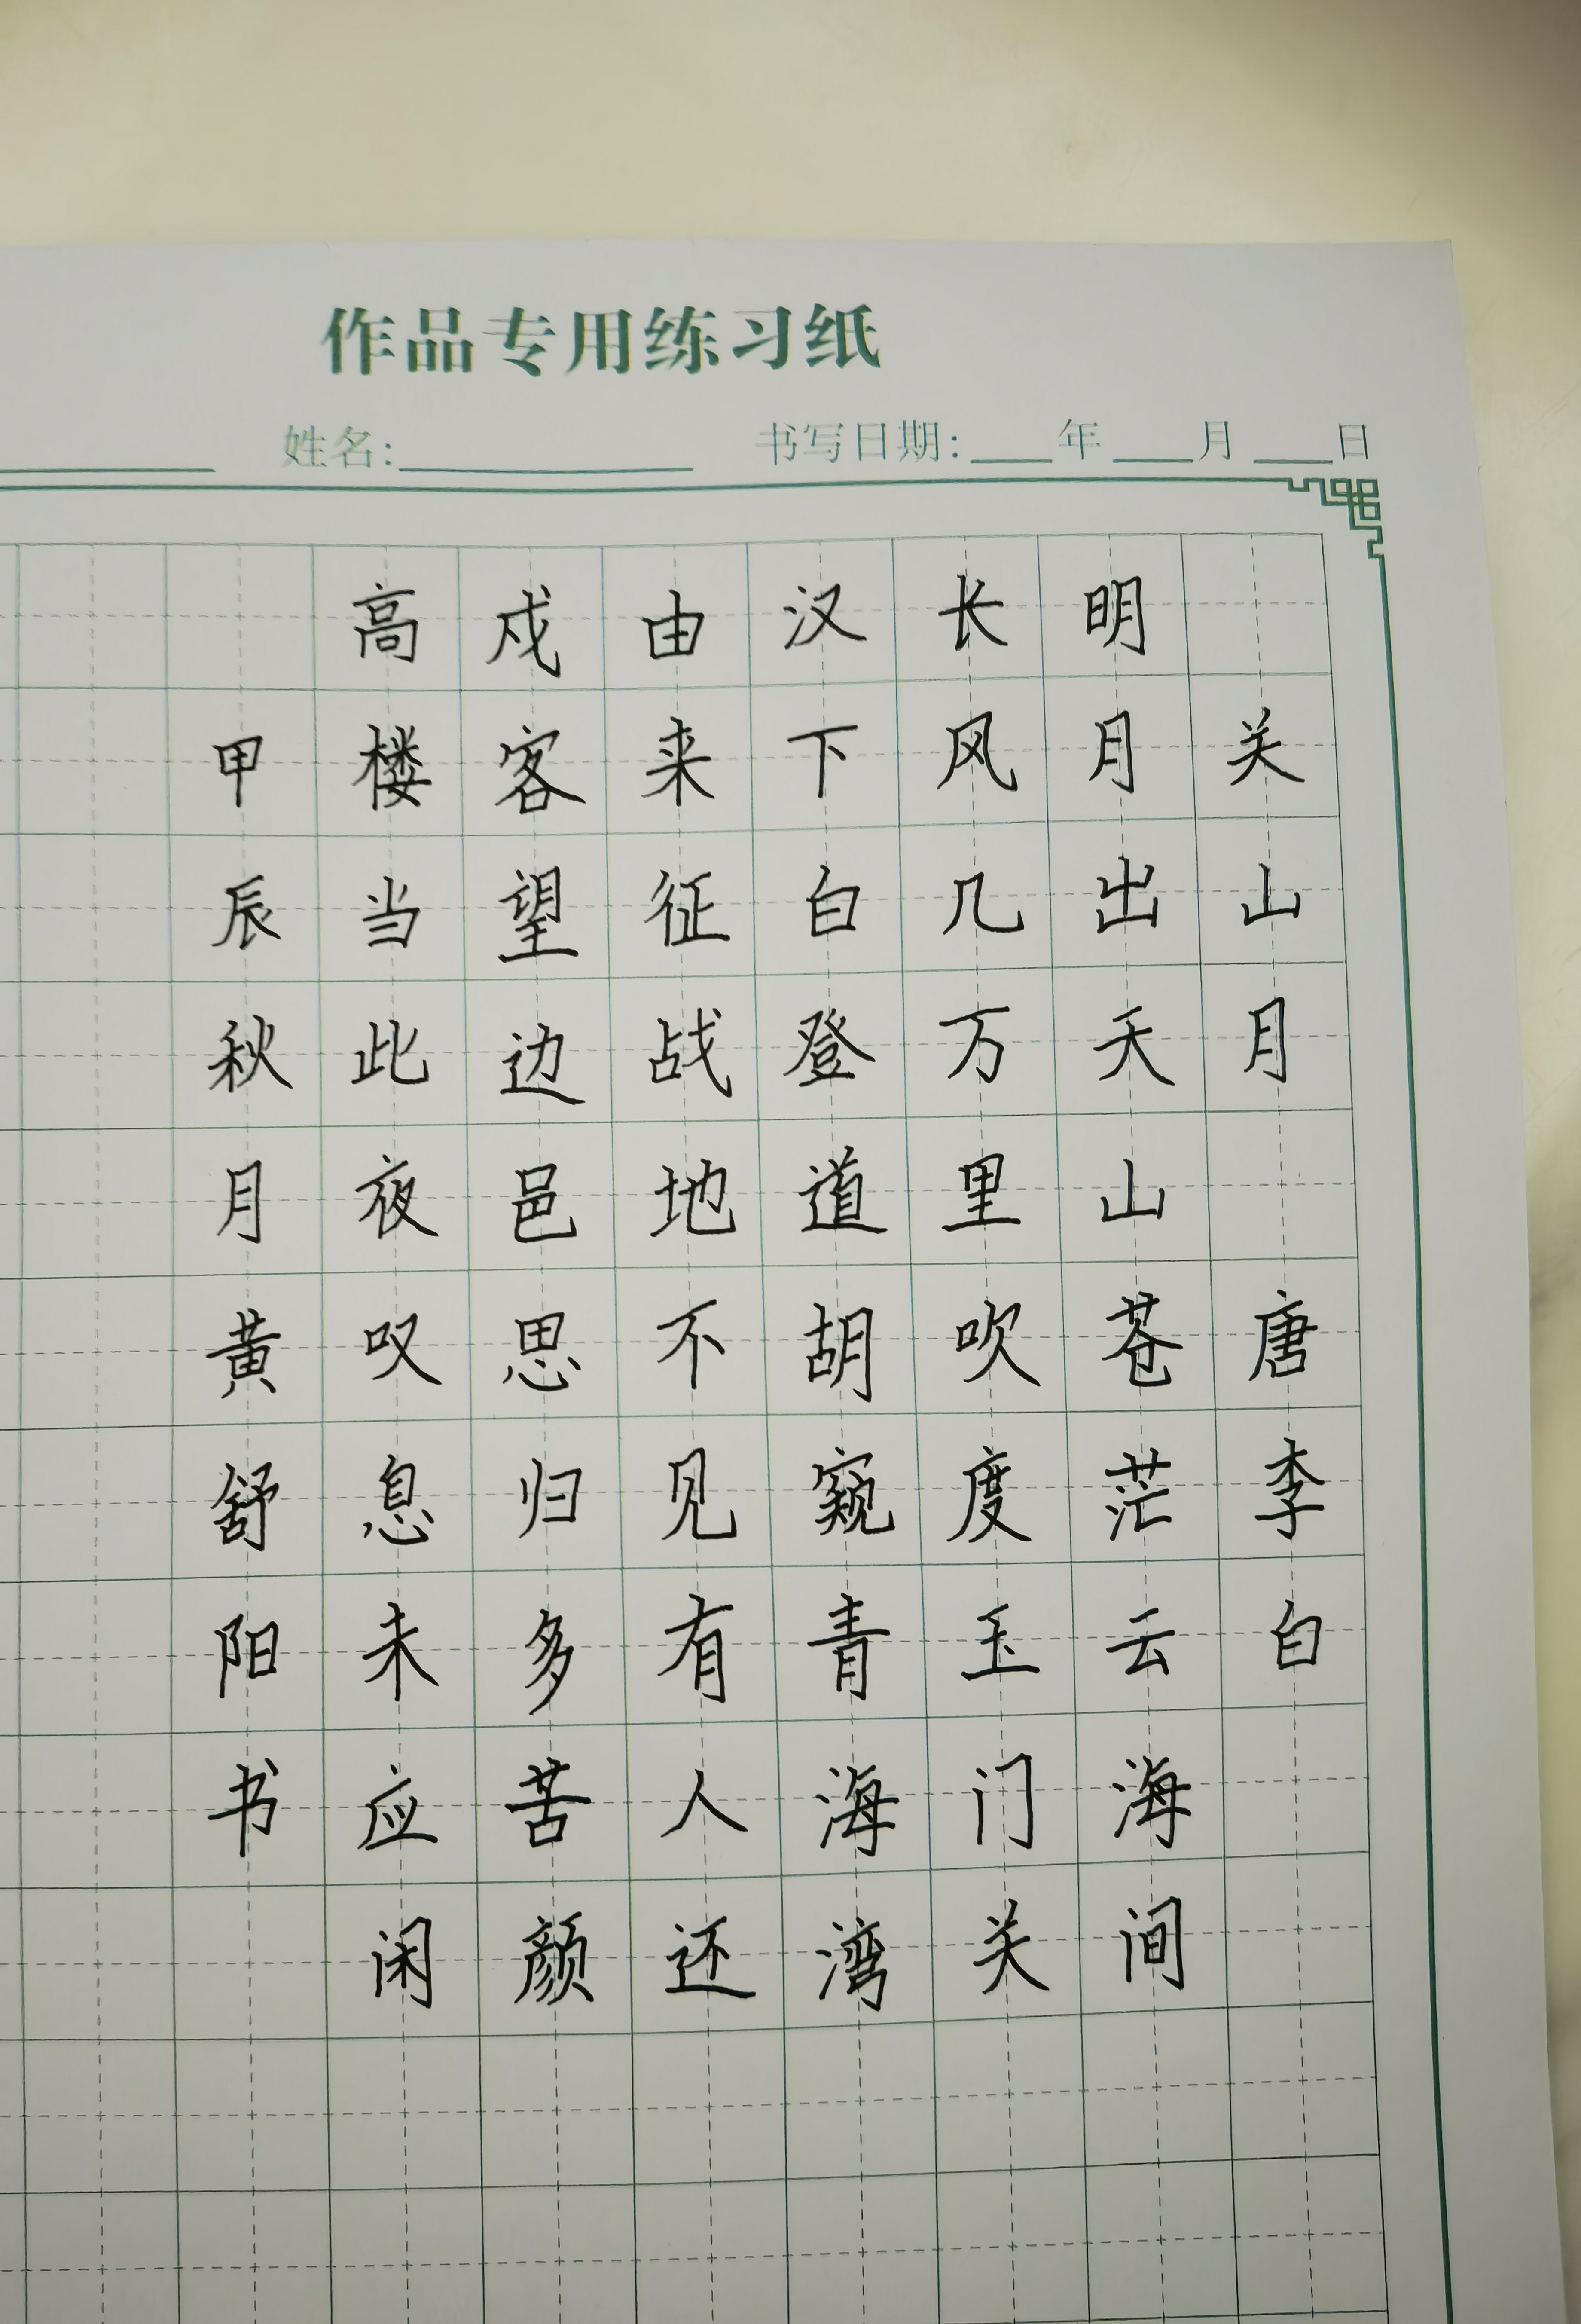 作品专用练习纸
姓名: 书写日期: 年 月 日
关山月 唐李白
明月出天山苍茫云海间
长风几万里吹度玉门关
汉下白登道胡窥青海湾
由来征战地不见有人还
戍客望边邑思归多苦颜
高楼当此夜叹息未应闲
甲辰秋月黄舒阳书